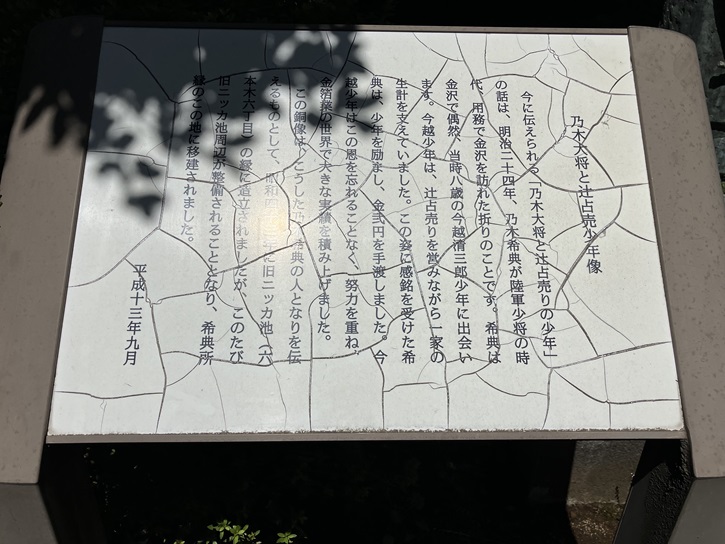 乃木大将と辻占売少年像
今に伝えられる「乃木大将と辻占売りの少年」
の話は、明治二十四年、乃木希典が陸軍少将の時
代、用務で金沢を訪れた折りのことです。希典は
金沢で偶然、当時八歳の今越清三郎少年に出会い
ます。今越少年は、辻占売りを営みながら一家の
生計を支えていました。この姿に感銘を受けた希
典は、少年を励まし、金弐円を手渡しました。今
越少年はこの恩を忘れることなく、努力を重ね、
金箔業の世界で大きな実績を積み上げました。
この銅像は、こうした乃木希典の人となりを伝
えるものとして、昭和四十三年に旧ニッカ池(六
本木六丁目)の縁に造立されましたが、このたび
旧ニッカ池周辺が整備されることとなり、希典所
縁のこの地に移建されました。
平成十三年九月